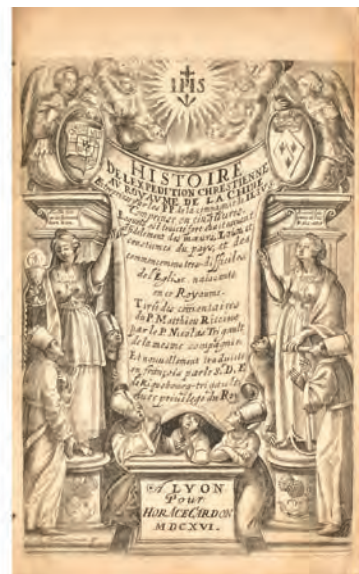 IHS
HISTOIRE
DE L'EXPEDITION CHRESTIENNE
AU ROYAUME DE LA CHINE
Entreprise par les PP. de la compagnie de IESVS
Comprinse en cinq livres
est traicté fort exactement
fidelement des mœurs, Loix, et
coustumes du pays, et des
commencemens tres-difficiles
de l'Eglise naissante
en ce Royaume
Tirée des commentaires
du P. Matthieu Riccius
par le P. Nicolas Trigault
de la mesme compagnie
Et nouvellement traduicte
en françois par le S. D. F.
de Riquebourg-Trigault
Avec privilege du Roy
A LYON
Pour
HORACE CARDON
MDCXVI.